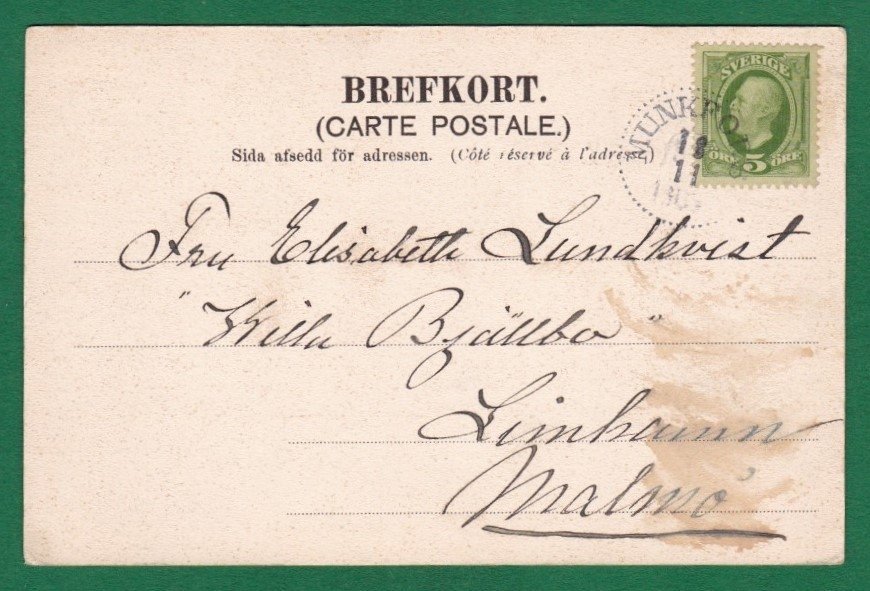 BREFKORT.
(CARTE POSTALE.)
Sida afsedd för adressen. (Côté réservé à l'adresse)
SVERIGE
ÖRE 5 ÖRE
18
11
Fru Elisabeth Lundkvist
"Willa Bjällbo"
Limhamn
Malmö